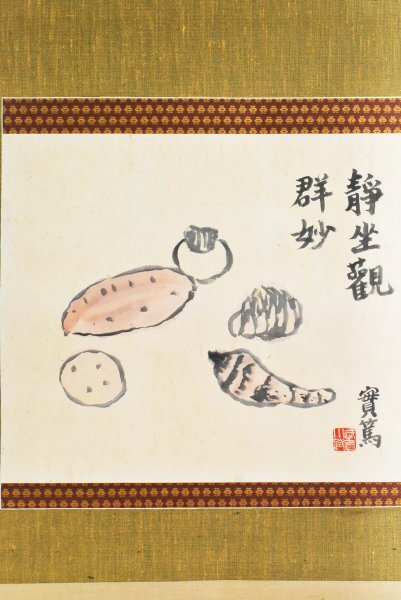 靜坐觀
群妙
實篤